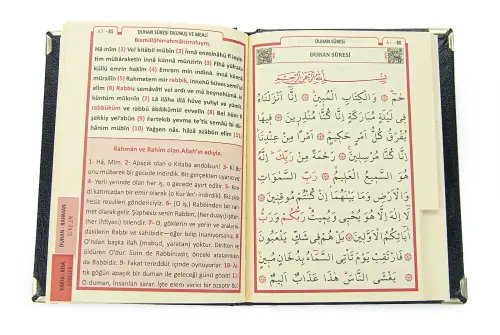 A1 -81 DUHAN SÛRESİ OKUNUŞ VE MEALİ
Bismillâhirrahmânirrahıym.
Hâ mîm (1) Vel kitâbil mübîn (2) İnnâ enzelnâhü fî leyle-
tim mübâraketin innâ künnâ münzirîn (3) Fîhâ yüfraku
küllü emrin hakîm (4) Emram min ındinâ, innâ künnâ
mürsilîn (5) Rahmetem mir rabbik, innehû hüves semî'ul
alîm (6) Rabbis semâvâti vel ardı ve mâ beynehümâ, in
küntüm mûkınîn (7) Lâ ilâhe illâ hüve yuhyî ve yümît,
rabbüküm ve rabbü âbâikümül evvelîn (8) Bel hüm fî
şekkiy yel'abûn (9) Fertekıb yevme te'tis semâü bi dü-
hânim mübîn (10) Yağşen nâs, hâzâ azâbün elîm (11)
Rahmân ve Rahîm olan Allah'ın adıyla.
1- Hâ, Mîm. 2- Apaçık olan o Kitaba andolsun! 3- Ki Biz
onu mübarek bir gecede indirdik. Biz gerçekten uyarıcıyız.
4- Yerli yerinde olan her iş, o gecede ayırt edilir. 5- Ken-
di katımızdan bir emir olarak (o Kur'ânı) indirdik. Biz, şüp-
hesiz resulleri göndericiyiz. 6- (O iş,) Rabbinden bir rah-
met olarak gelir. Şüphesiz senin Rabbin, (her duayı) işiten,
(her ihtiyacı) bilendir. 7- O, göklerin ve yerin ve aralarında-
kilerin Rabbi ve sahibidir—eğer bilip inanıyorsanız. 8-
O'ndan başka ilah (mabud, yaratan) yoktur. Dirilten ve
öldüren O'dur. Sizin de Rabbinizdir, önceki atalarınızın
da Rabbidir. 9- Fakat tereddüt içinde oynuyorlar. 10- Ar-
tık göğün apaçık bir duman ile geleceği günü gözet! 11-
O duman, insanları sarar. İşte elem verici bir azaptır bu!
DUHAN - RAHMAN
DUHAN SÛRESİ A1 -81
DUHAN SÛRESİ
بِسْمِ اللّٰهِ الرَّحْمٰنِ الرَّحِيمِ
حٰمٓ ۞ وَالْكِتَابِ الْمُبِينِ ۞ اِنَّٓا اَنْزَلْنَاهُ
فِي لَيْلَةٍ مُبَارَكَةٍ اِنَّا كُنَّا مُنْذِرِينَ ۞ فِيهَا
يُفْرَقُ كُلُّ اَمْرٍ حَكِيمٍ ۞ اَمْرًا مِنْ عِنْدِنَا
اِنَّا كُنَّا مُرْسِلِينَ ۞ رَحْمَةً مِنْ رَبِّكَ اِنَّهُ
هُوَ السَّمِيعُ الْعَلِيمُ ۞ رَبِّ السَّمٰوَاتِ
وَالْاَرْضِ وَمَا بَيْنَهُمَا اِنْ كُنْتُمْ مُوقِنِينَ ۞
لَٓا اِلٰهَ اِلَّا هُوَ يُحْيِي وَيُمِيتُ رَبُّكُمْ وَرَبُّ
اٰبَٓائِكُمُ الْاَوَّلِينَ ۞ بَلْ هُمْ فِي شَكٍّ يَلْعَبُونَ
۞ فَارْتَقِبْ يَوْمَ تَأْتِي السَّمَٓاءُ بِدُخَانٍ مُبِينٍ
۞ يَغْشَى النَّاسَ هٰذَا عَذَابٌ اَلِيمٌ ۞